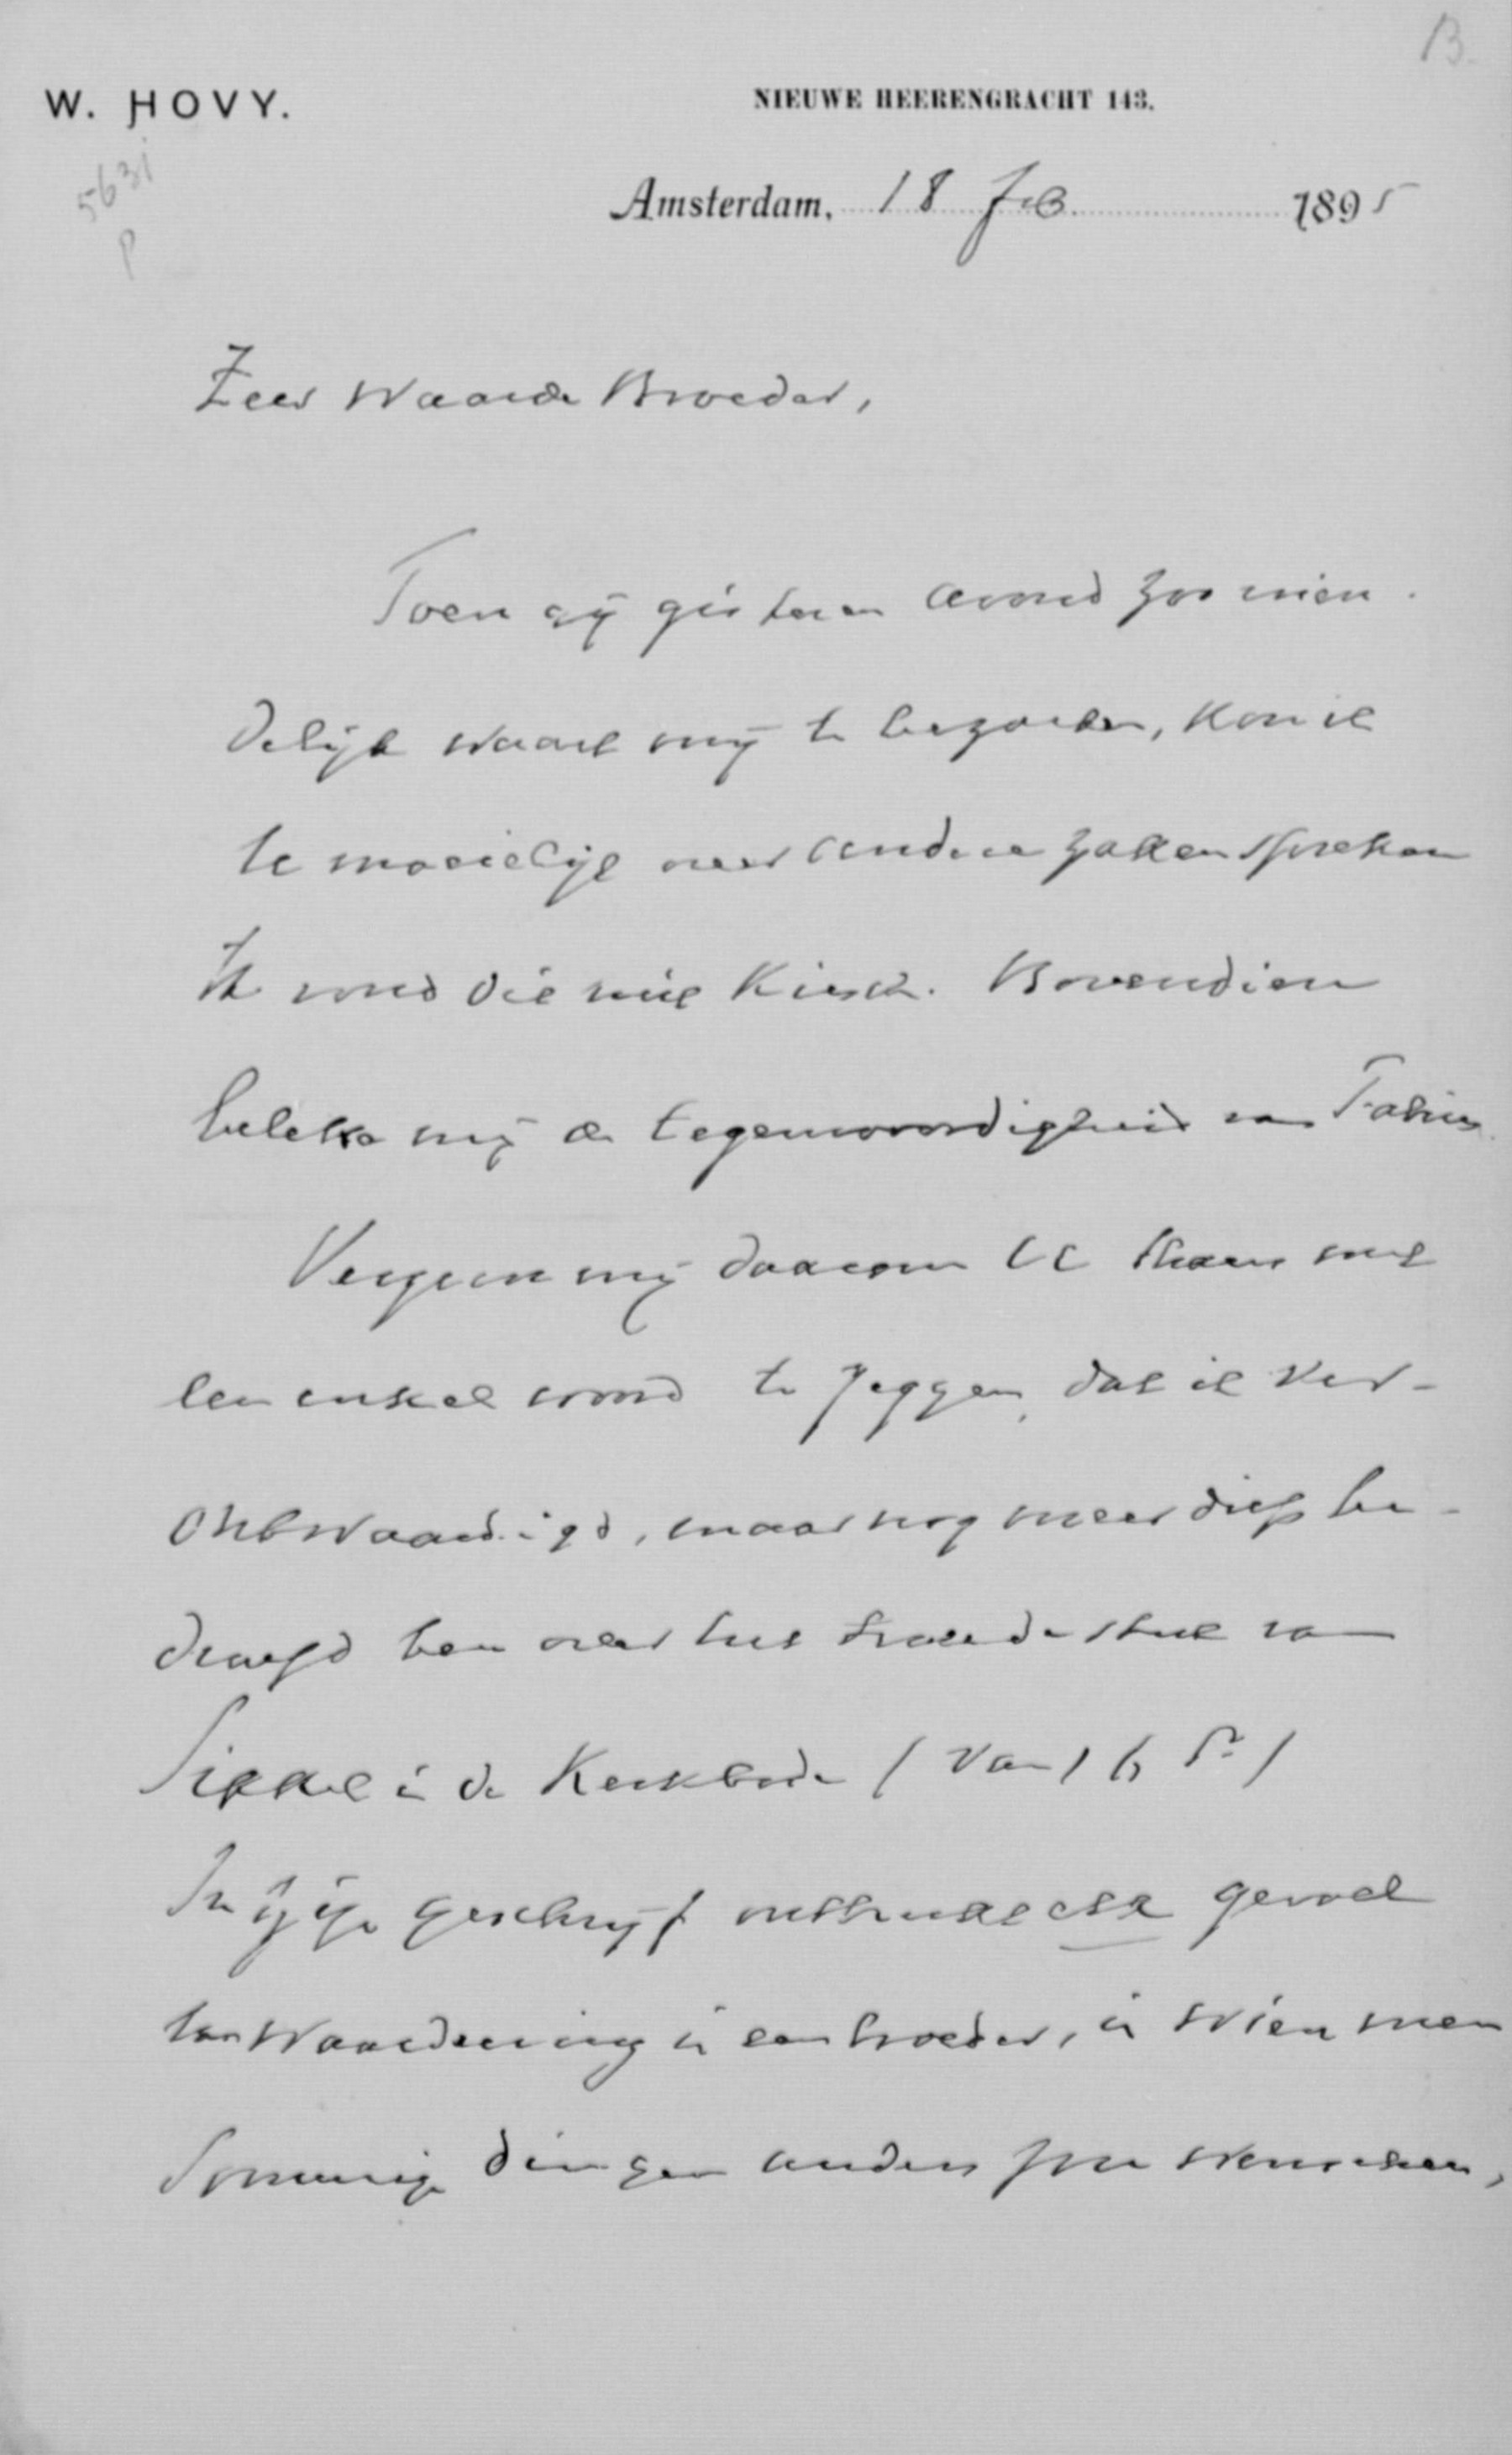 B.
W. HOVY.
NIEUWE HEERENGRACHT 143.
5631
P
Amsterdam, 18 Feb. 1895
Zeer Waarde Broeder,
Toen gij gisteren avond zoo vrien-
delijk waart mij te bezoeken, kon ik
te moeielijk over andere zaken spreken
Ik vond dit niet kiesch. Bovendien
belette mij de tegenwoordigheid van Fabius
Vergun mij daarom U thans met
een enkel woord te zeggen, dat ik ver-
ontwaardigd, maar nog meer diep be-
droefd ben over het tweede stuk van
Sikkel in de Kerkbode (van 16 dr.)
In zijn geschrijf ontbreekt elk gevoel
van waardeering in een broeder, in wien men
Sommige dingen anders zou wenschen,